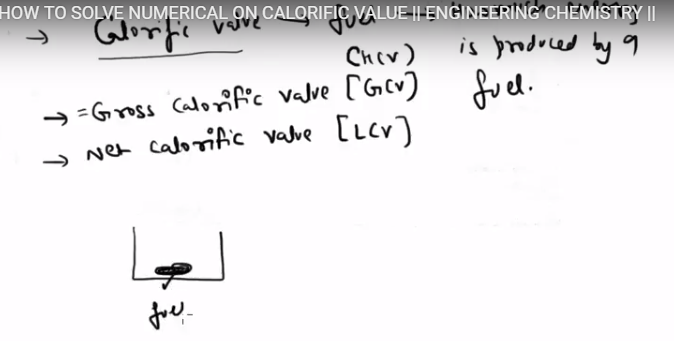 HOW TO SOLVE NUMERICAL ON CALORIFIC VALUE || ENGINEERING CHEMISTRY ||
→ Calorific value → fuel
(HCV) is produced by a
→ = Gross calorific value [GCV] fuel.
→ Net calorific value [LCV]
fuel.